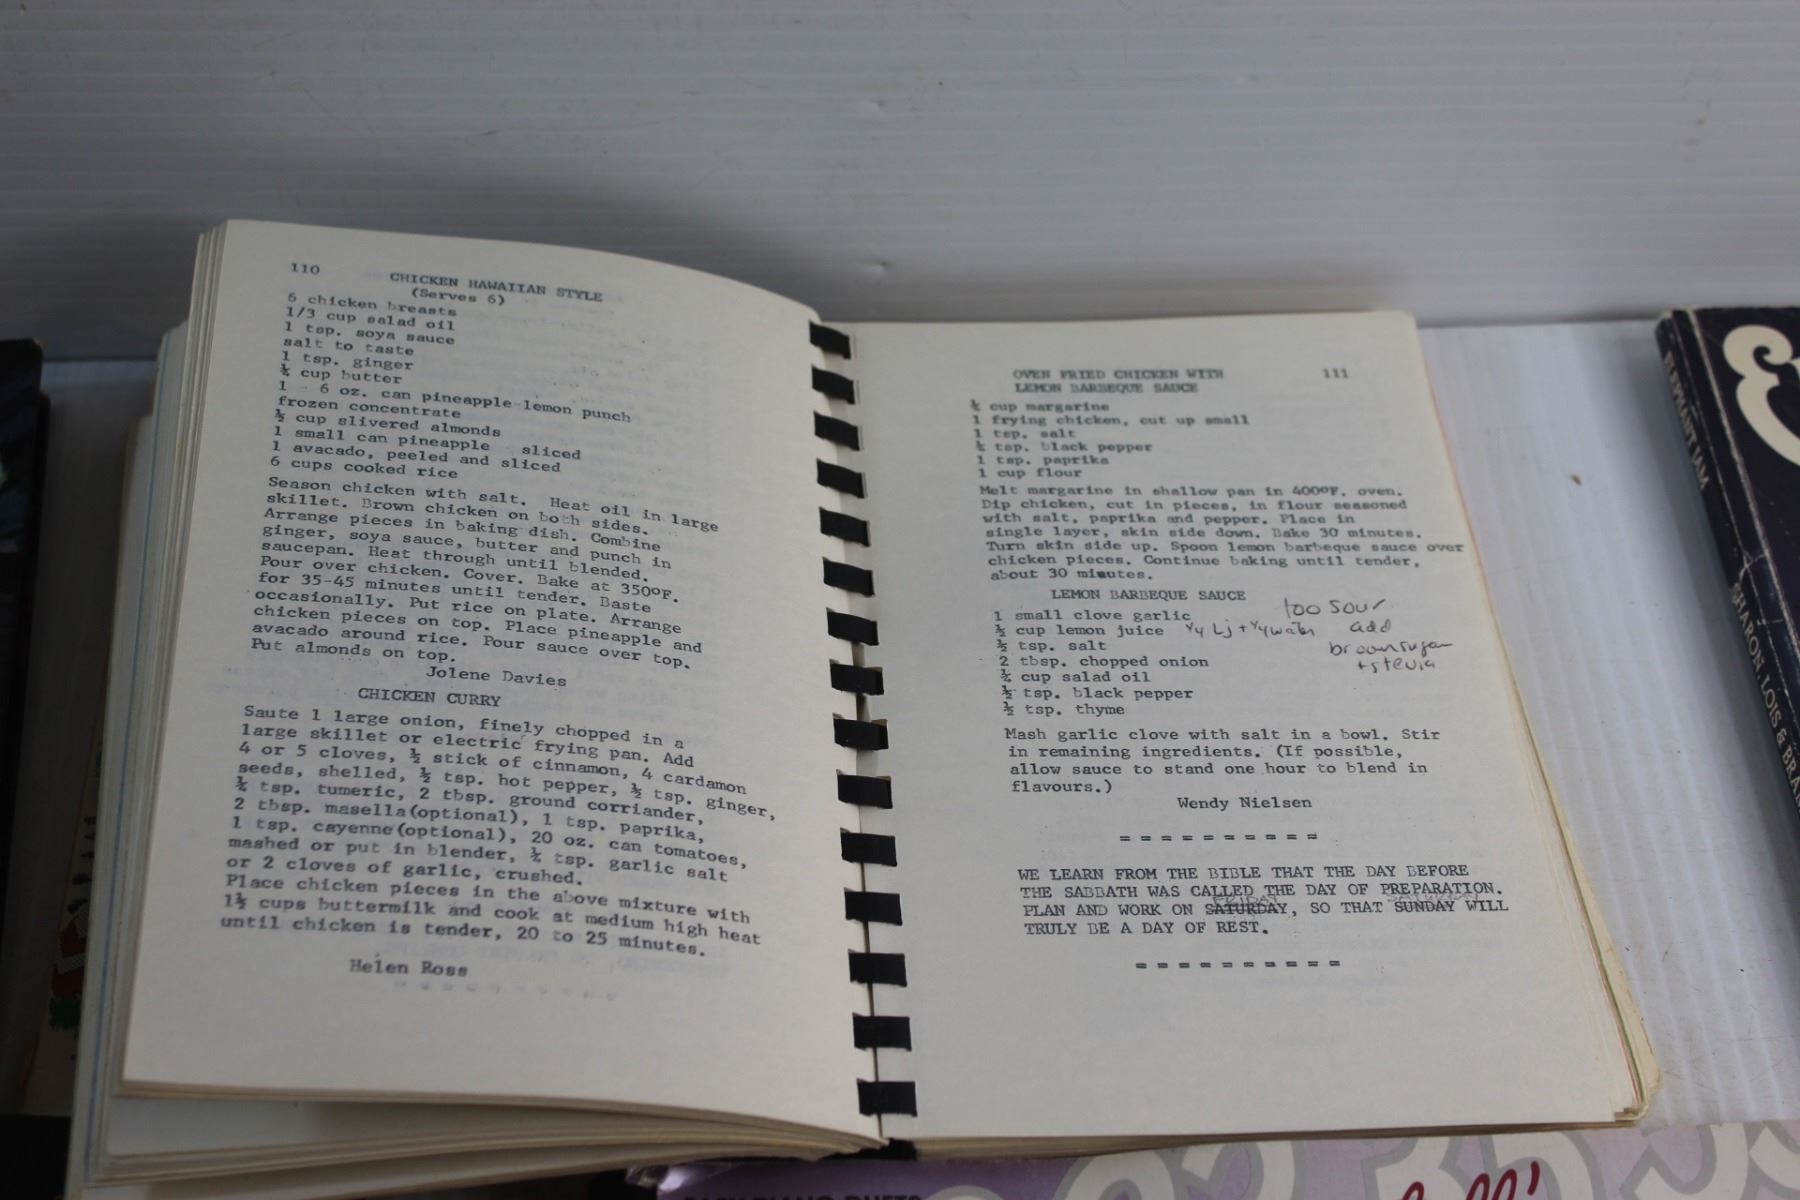 110
CHICKEN HAWAIIAN STYLE
(Serves 6)
6 chicken breasts
1/3 cup salad oil
1 tsp. soya sauce
salt to taste
1 tsp. ginger
¼ cup butter
1 - 6 oz. can pineapple-lemon punch
frozen concentrate
½ cup slivered almonds
1 small can pineapple sliced
1 avacado, peeled and sliced
6 cups cooked rice
Season chicken with salt. Heat oil in large
skillet. Brown chicken on both sides.
Arrange pieces in baking dish. Combine
ginger, soya sauce, butter and punch in
saucepan. Heat through until blended.
Pour over chicken. Cover. Bake at 350ºF.
for 35-45 minutes until tender. Baste
occasionally. Put rice on plate. Arrange
chicken pieces on top. Place pineapple and
avacado around rice. Pour sauce over top.
Put almonds on top.
Jolene Davies
CHICKEN CURRY
Saute 1 large onion, finely chopped in a
large skillet or electric frying pan. Add
4 or 5 cloves, ½ stick of cinnamon, 4 cardamon
seeds, shelled, ½ tsp. hot pepper, ½ tsp. ginger,
¼ tsp. tumeric, 2 tbsp. ground corriander,
2 tbsp. masella(optional), 1 tsp. paprika,
1 tsp. cayenne(optional), 20 oz. can tomatoes,
mashed or put in blender, ¼ tsp. garlic salt
or 2 cloves of garlic, crushed.
Place chicken pieces in the above mixture with
1½ cups buttermilk and cook at medium high heat
until chicken is tender, 20 to 25 minutes.
Helen Ross
OVEN FRIED CHICKEN WITH 111
LEMON BARBEQUE SAUCE
¼ cup margarine
1 frying chicken, cut up small
1 tsp. salt
¼ tsp. black pepper
1 tsp. paprika
1 cup flour
Melt margarine in shallow pan in 400ºF. oven.
Dip chicken, cut in pieces, in flour seasoned
with salt, paprika and pepper. Place in
single layer, skin side down. Bake 30 minutes.
Turn skin side up. Spoon lemon barbeque sauce over
chicken pieces. Continue baking until tender,
about 30 minutes.
LEMON BARBEQUE SAUCE
1 small clove garlic too sour
½ cup lemon juice ¼ Lj + ¼ water add
½ tsp. salt brown sugar
2 tbsp. chopped onion + stevia
¼ cup salad oil
½ tsp. black pepper
½ tsp. thyme
Mash garlic clove with salt in a bowl. Stir
in remaining ingredients. (If possible,
allow sauce to stand one hour to blend in
flavours.)
Wendy Nielsen
= = = = = = = = = =
WE LEARN FROM THE BIBLE THAT THE DAY BEFORE
THE SABBATH WAS CALLED THE DAY OF PREPARATION.
FRIDAY SATURDAY
PLAN AND WORK ON SATURDAY, SO THAT SUNDAY WILL
TRULY BE A DAY OF REST.
= = = = = = = = = =
ELEPHANT JAM
SHARON, LOIS & BRAM